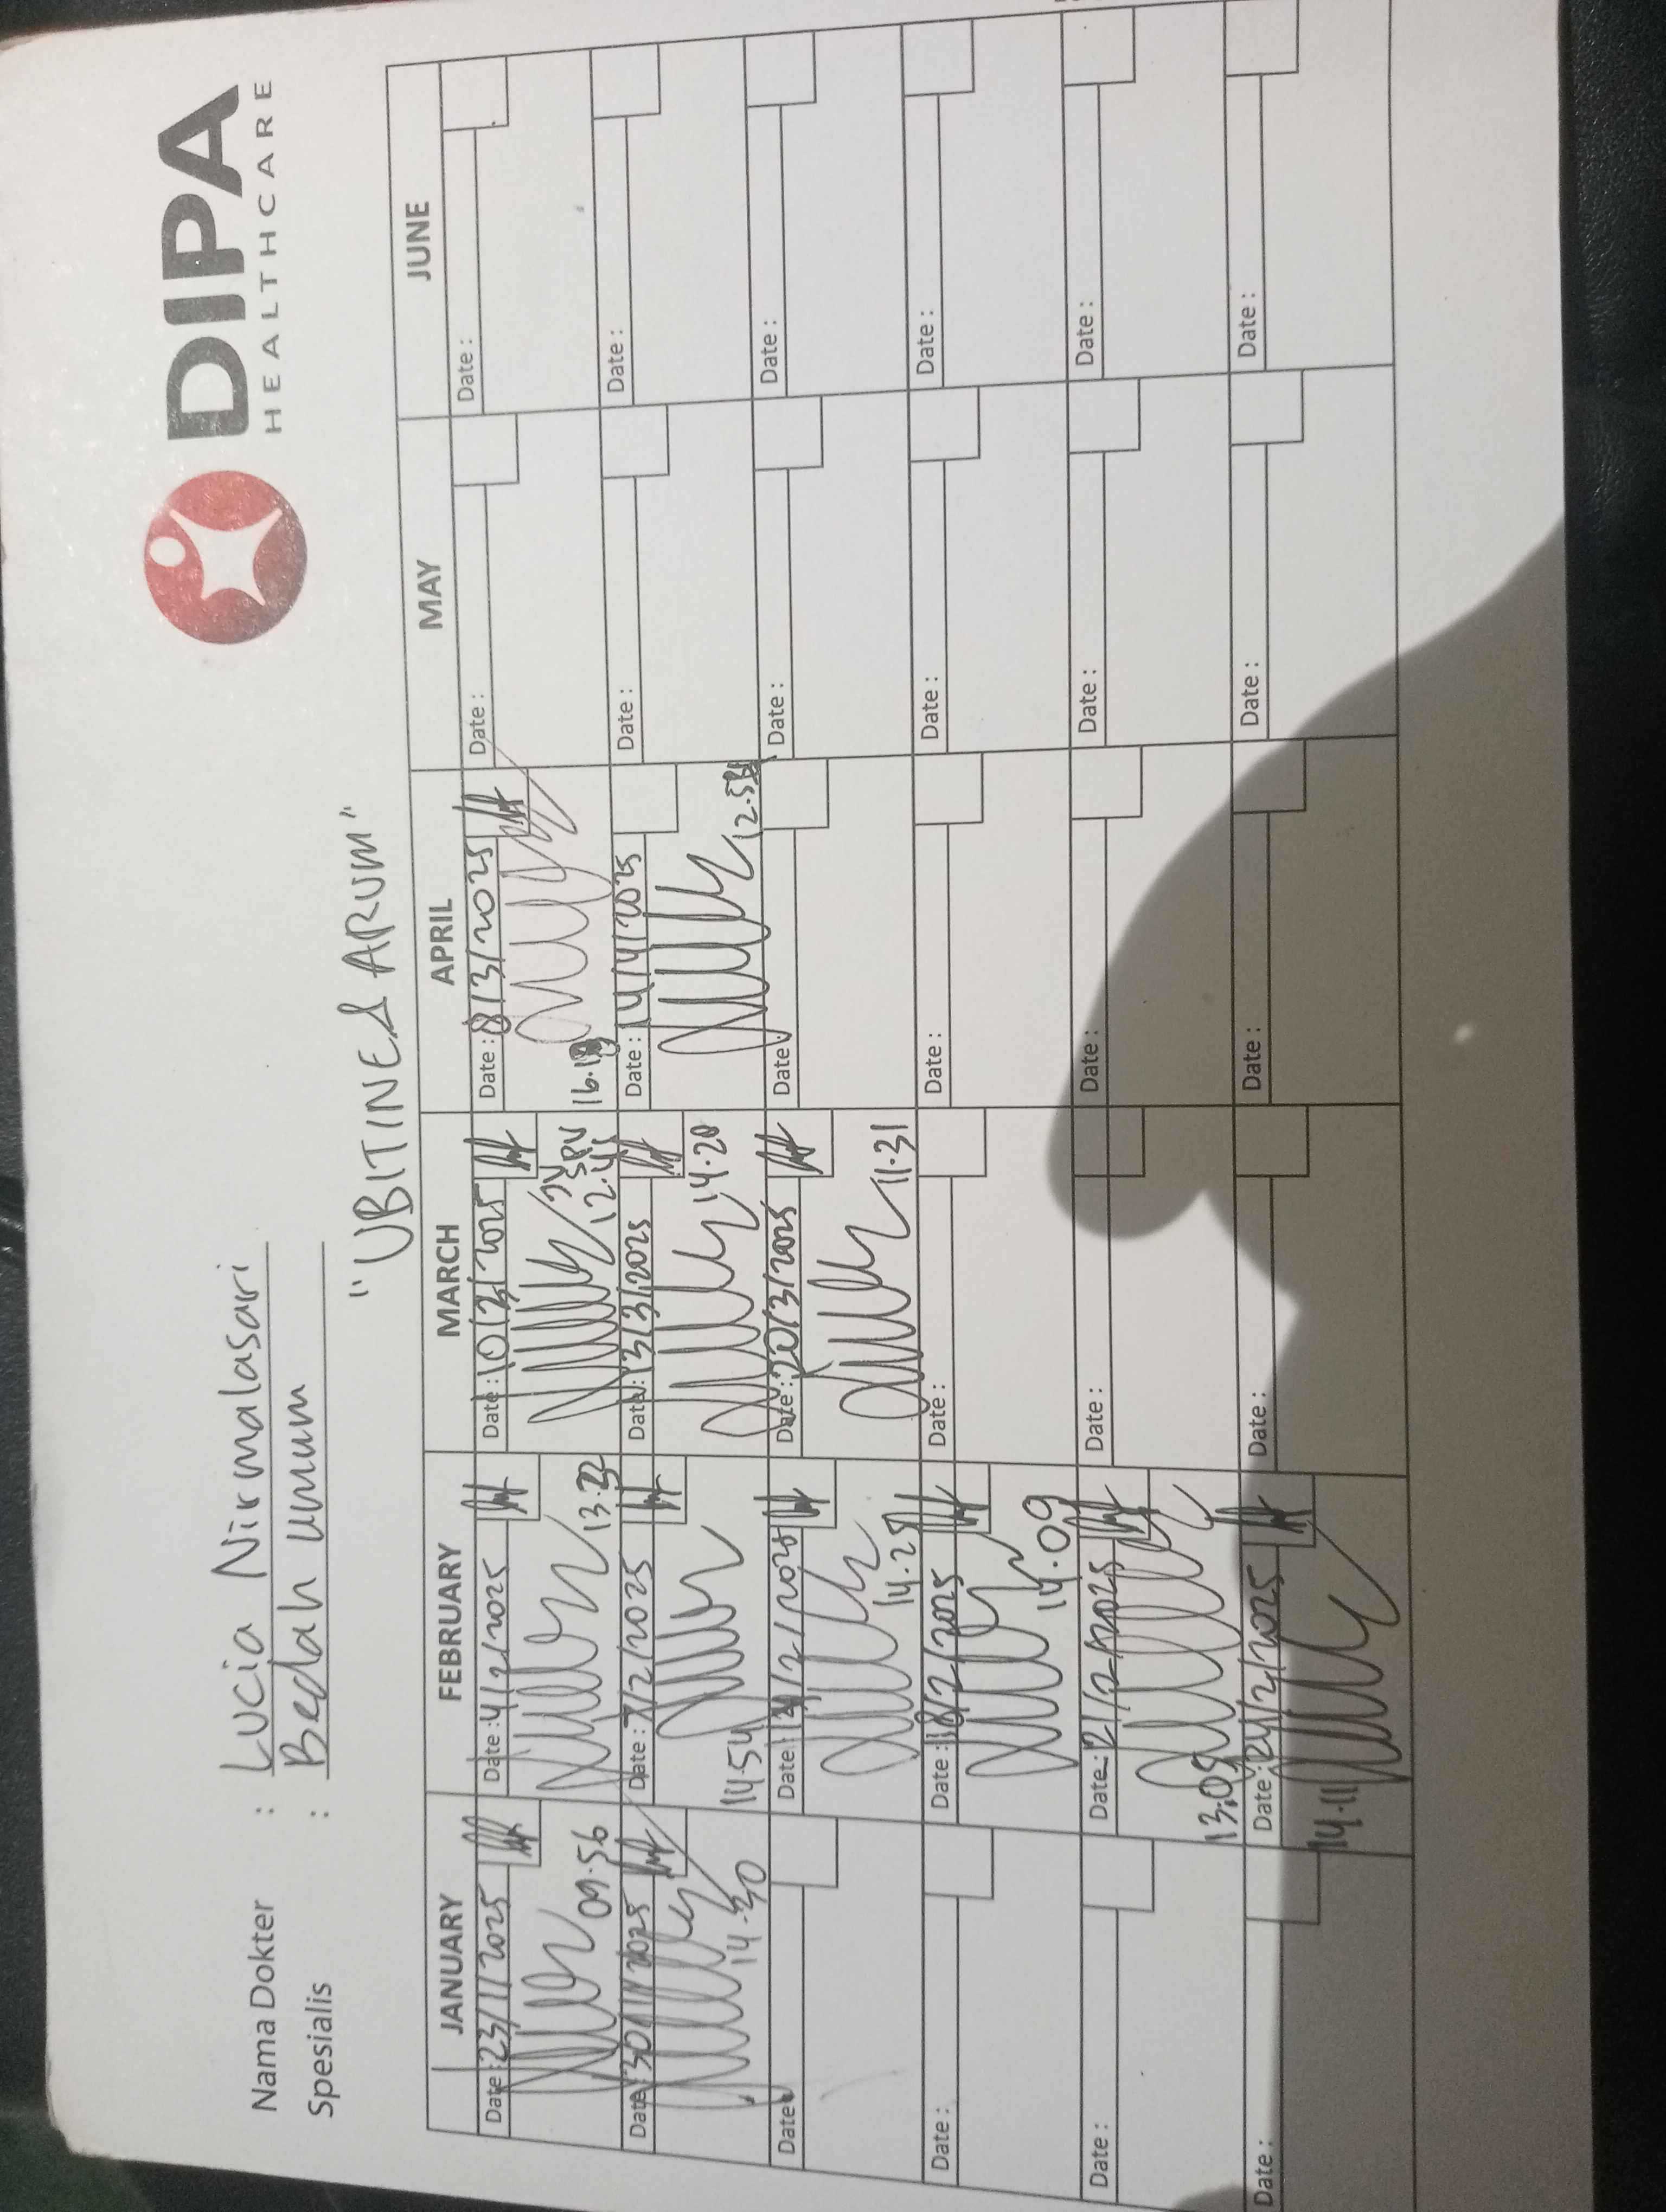 DIPA
HEALTHCARE
Nama Dokter : Lucia Nirmalasari
Spesialis : Bedah Umum
"UBITINEA ARUM"
JANUARY FEBRUARY MARCH APRIL MAY JUNE
Date : 23/1/2025 Date : 4/2/2025 Date : 10/3/2025 Date : 8/3/2025 Date : Date :
09.56 13.22 SPV 12.45 16.19
Date : 30/1/2025 Date : 7/2/2025 Date : 13/3/2025 Date : 14/4/2025 Date : Date :
14.30 14.54 14.20 12.53
Date : Date : /2/2025 Date : 20/3/2025 Date : Date : Date :
14.25 11.31
Date : Date : 18/2/2025 Date : Date : Date : Date :
14.09
Date : Date : 21/2/2025 Date : Date : Date : Date :
13.05
Date : Date : 24/2/2025 Date : Date : Date : Date :
14.11